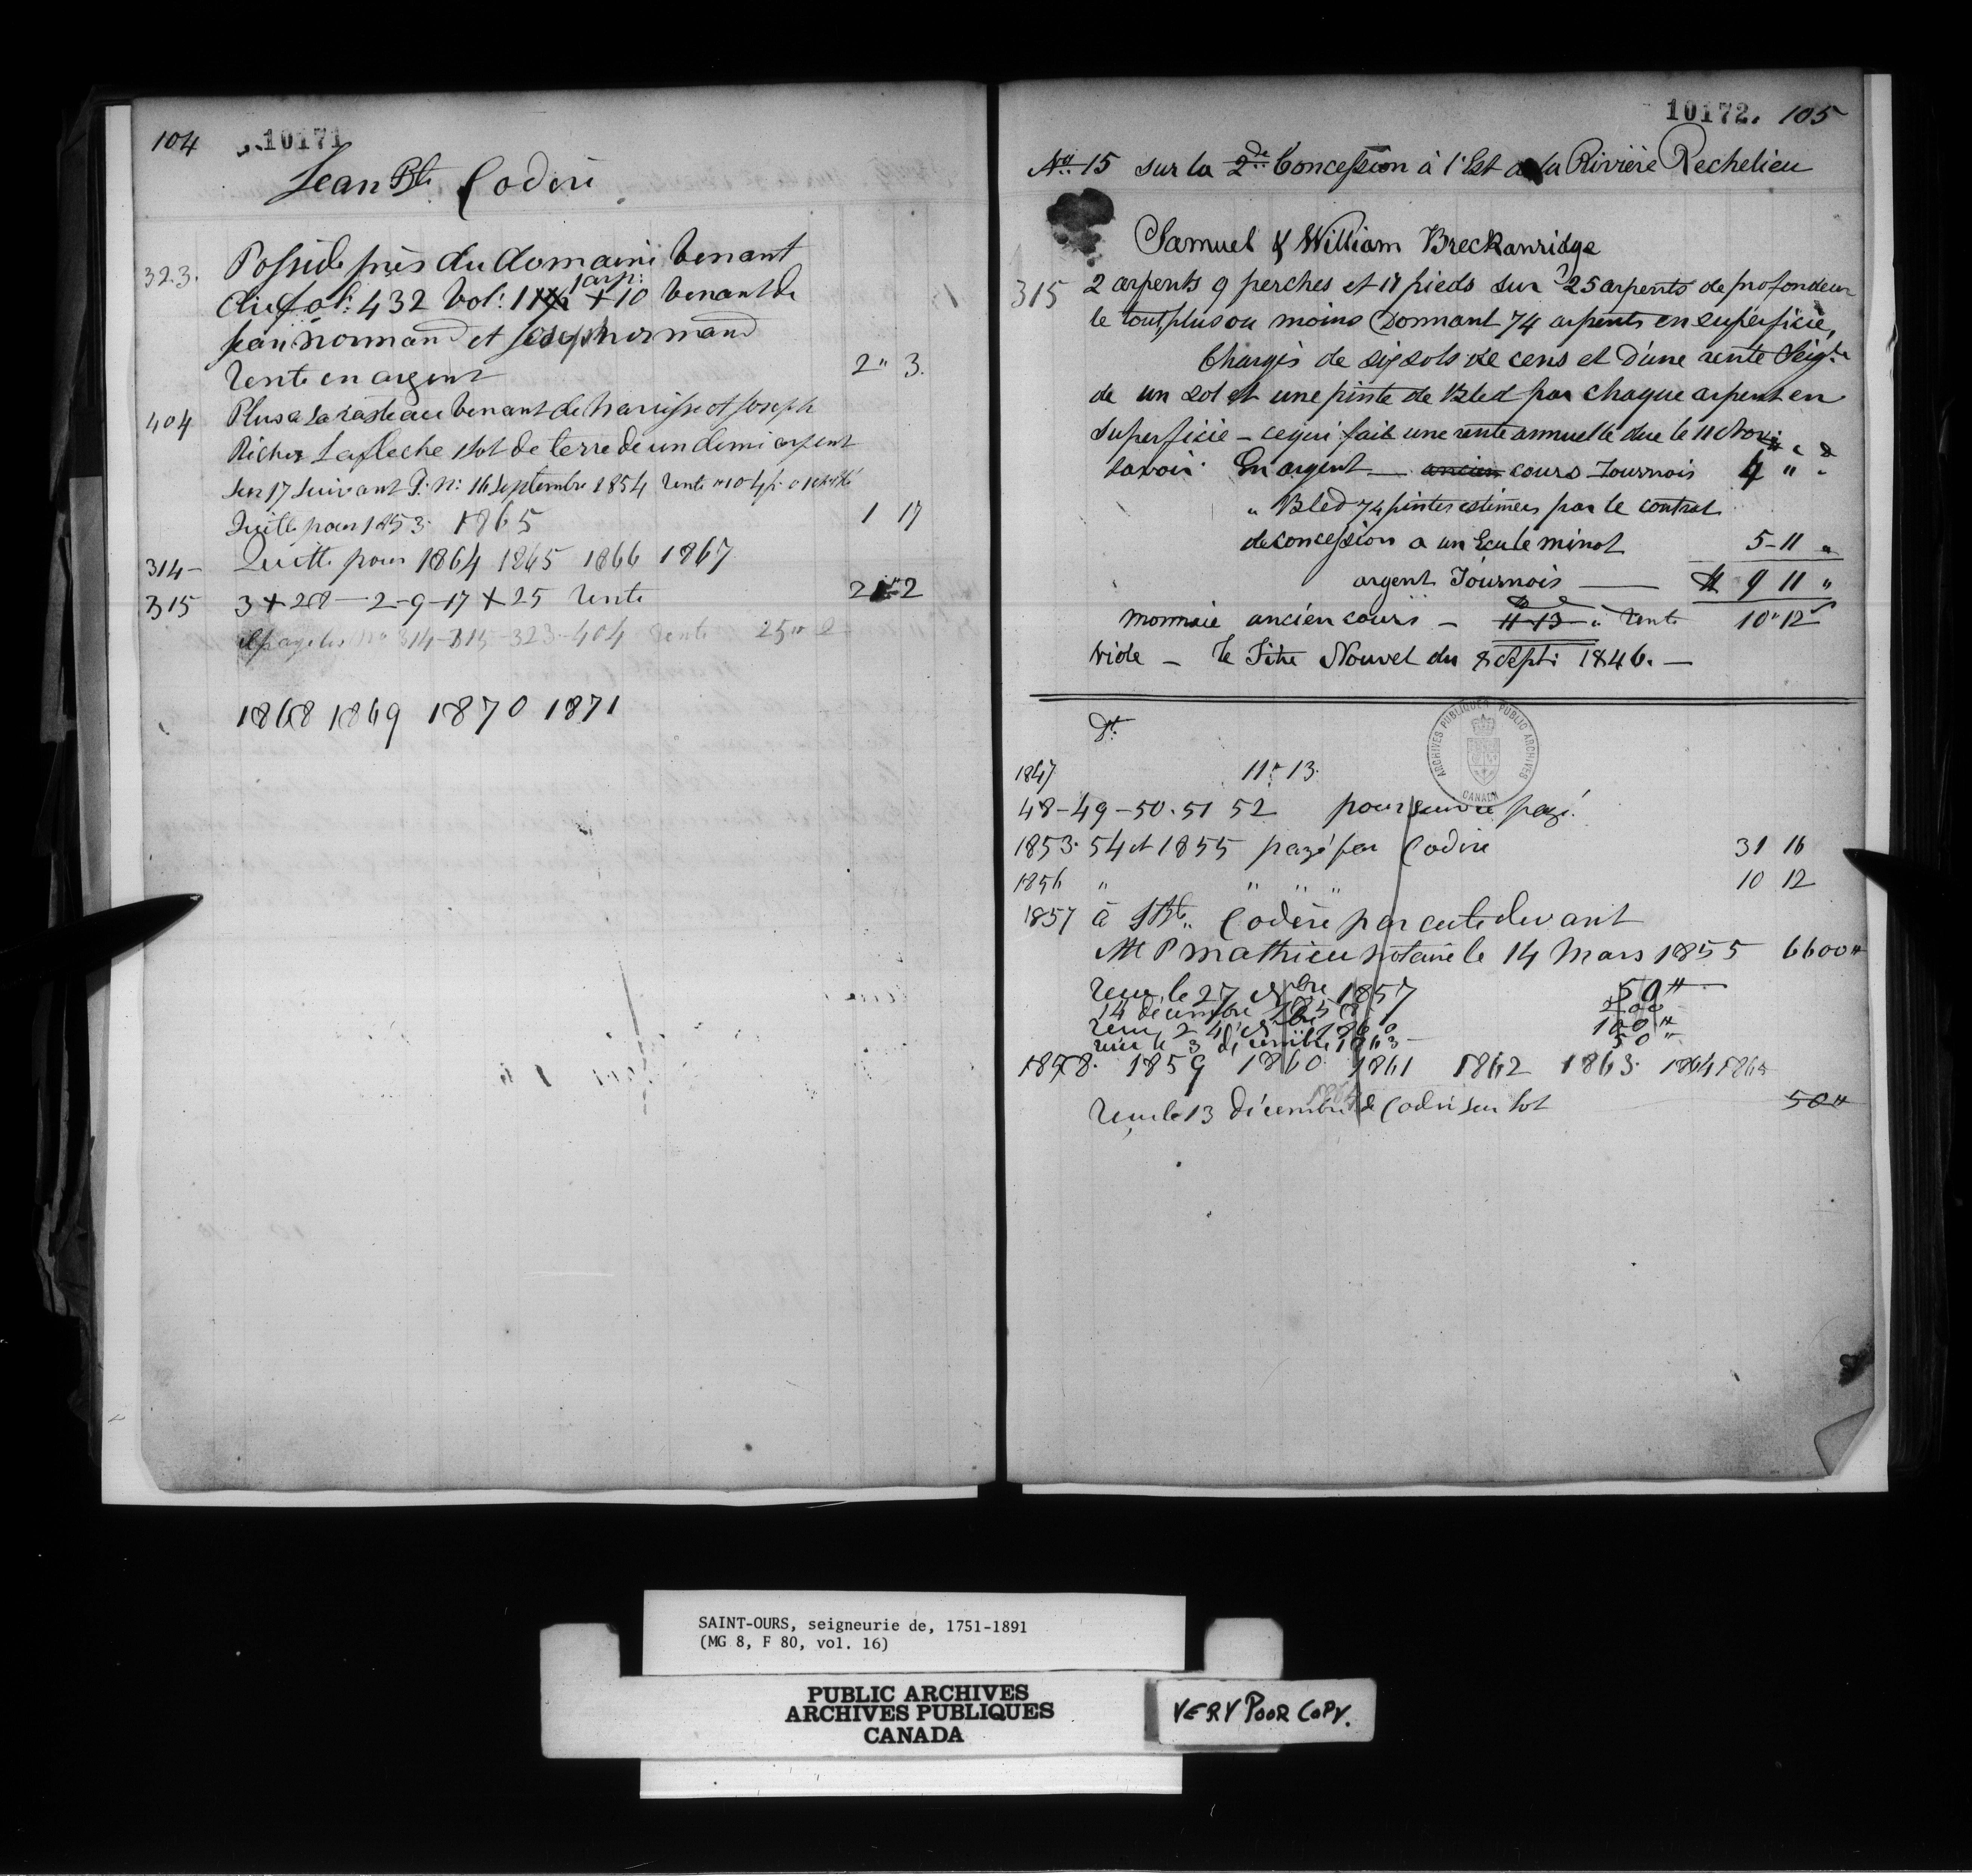 104 10171
Jean Bte Coderre
323. Possède près du domaine venant
du fol: 432 Vol: 1 1 arp: + 10 venant de
Jean Normand et Joseph normand
Rente en argent 2" 3.
404 Plus a La venant de et Joseph
Richer Lafleche 1 lot de terre de un demi arpent
sur 17 suivant P. N: 16 septembre 1854 rente
Quitte pour 1853. 1865 1 17
314 - Quitte pour 1864 1865 1866 1867
315 3 + 28 — 2-9-17 + 25 rente 21" 2
il paye les No 314-315-323-404 rente 25" 2
1868 1869 1870 1871
10172. 105
No 15 sur la 2de Concession à l'Est de la Rivière Rechelieu
Samuel & William Breckanridge
315 2 arpents 9 perches et 17 pieds sur 25 arpents de profondeur
le tout plus ou moins Donnant 74 arpents en superficie,
Chargés de six sols de cens et D'une rente Seigle
de un sol et une pinte de Bled par chaque arpent en
Superficie - ce qui fait une rente annuelle due le 11 Nov:
savoir En argent — ancien cours Tournois 4 " "
" Bled 74 pintes estimées par le contrat
de concession a un Ecu le minot 5-11 "
argent Tournois — 9 11 "
monnaie ancien cours - 11-13 " rente 10" 12
vide - le Titre Nouvel du 8 Sept: 1846. —
Dt
ARCHIVES PUBLIQUES PUBLIC ARCHIVES CANADA
1847 11" 13.
48-49-50-51 52 poursuivie payé.
1853. 54 et 1855 payé par Codere 31 16
1856 " " " " 10 12
1857 à J Bte Codère par acte devant
Me P Mathieu Notaire le 14 Mars 1855 6600"
recu, le 27 Nbre 1857 50"
14 décembre 1858 200
recu 24 Nbre 1860 100"
recu le 3 décembre 1863 - 50"
1858. 1859 1860 1861 1862 1863. 1864 1865
1864
recu le 13 décembre de Codere sur lot 50"
SAINT-OURS, seigneurie de, 1751-1891
(MG 8, F 80, vol. 16)
PUBLIC ARCHIVES
ARCHIVES PUBLIQUES
CANADA
VERY POOR COPY.